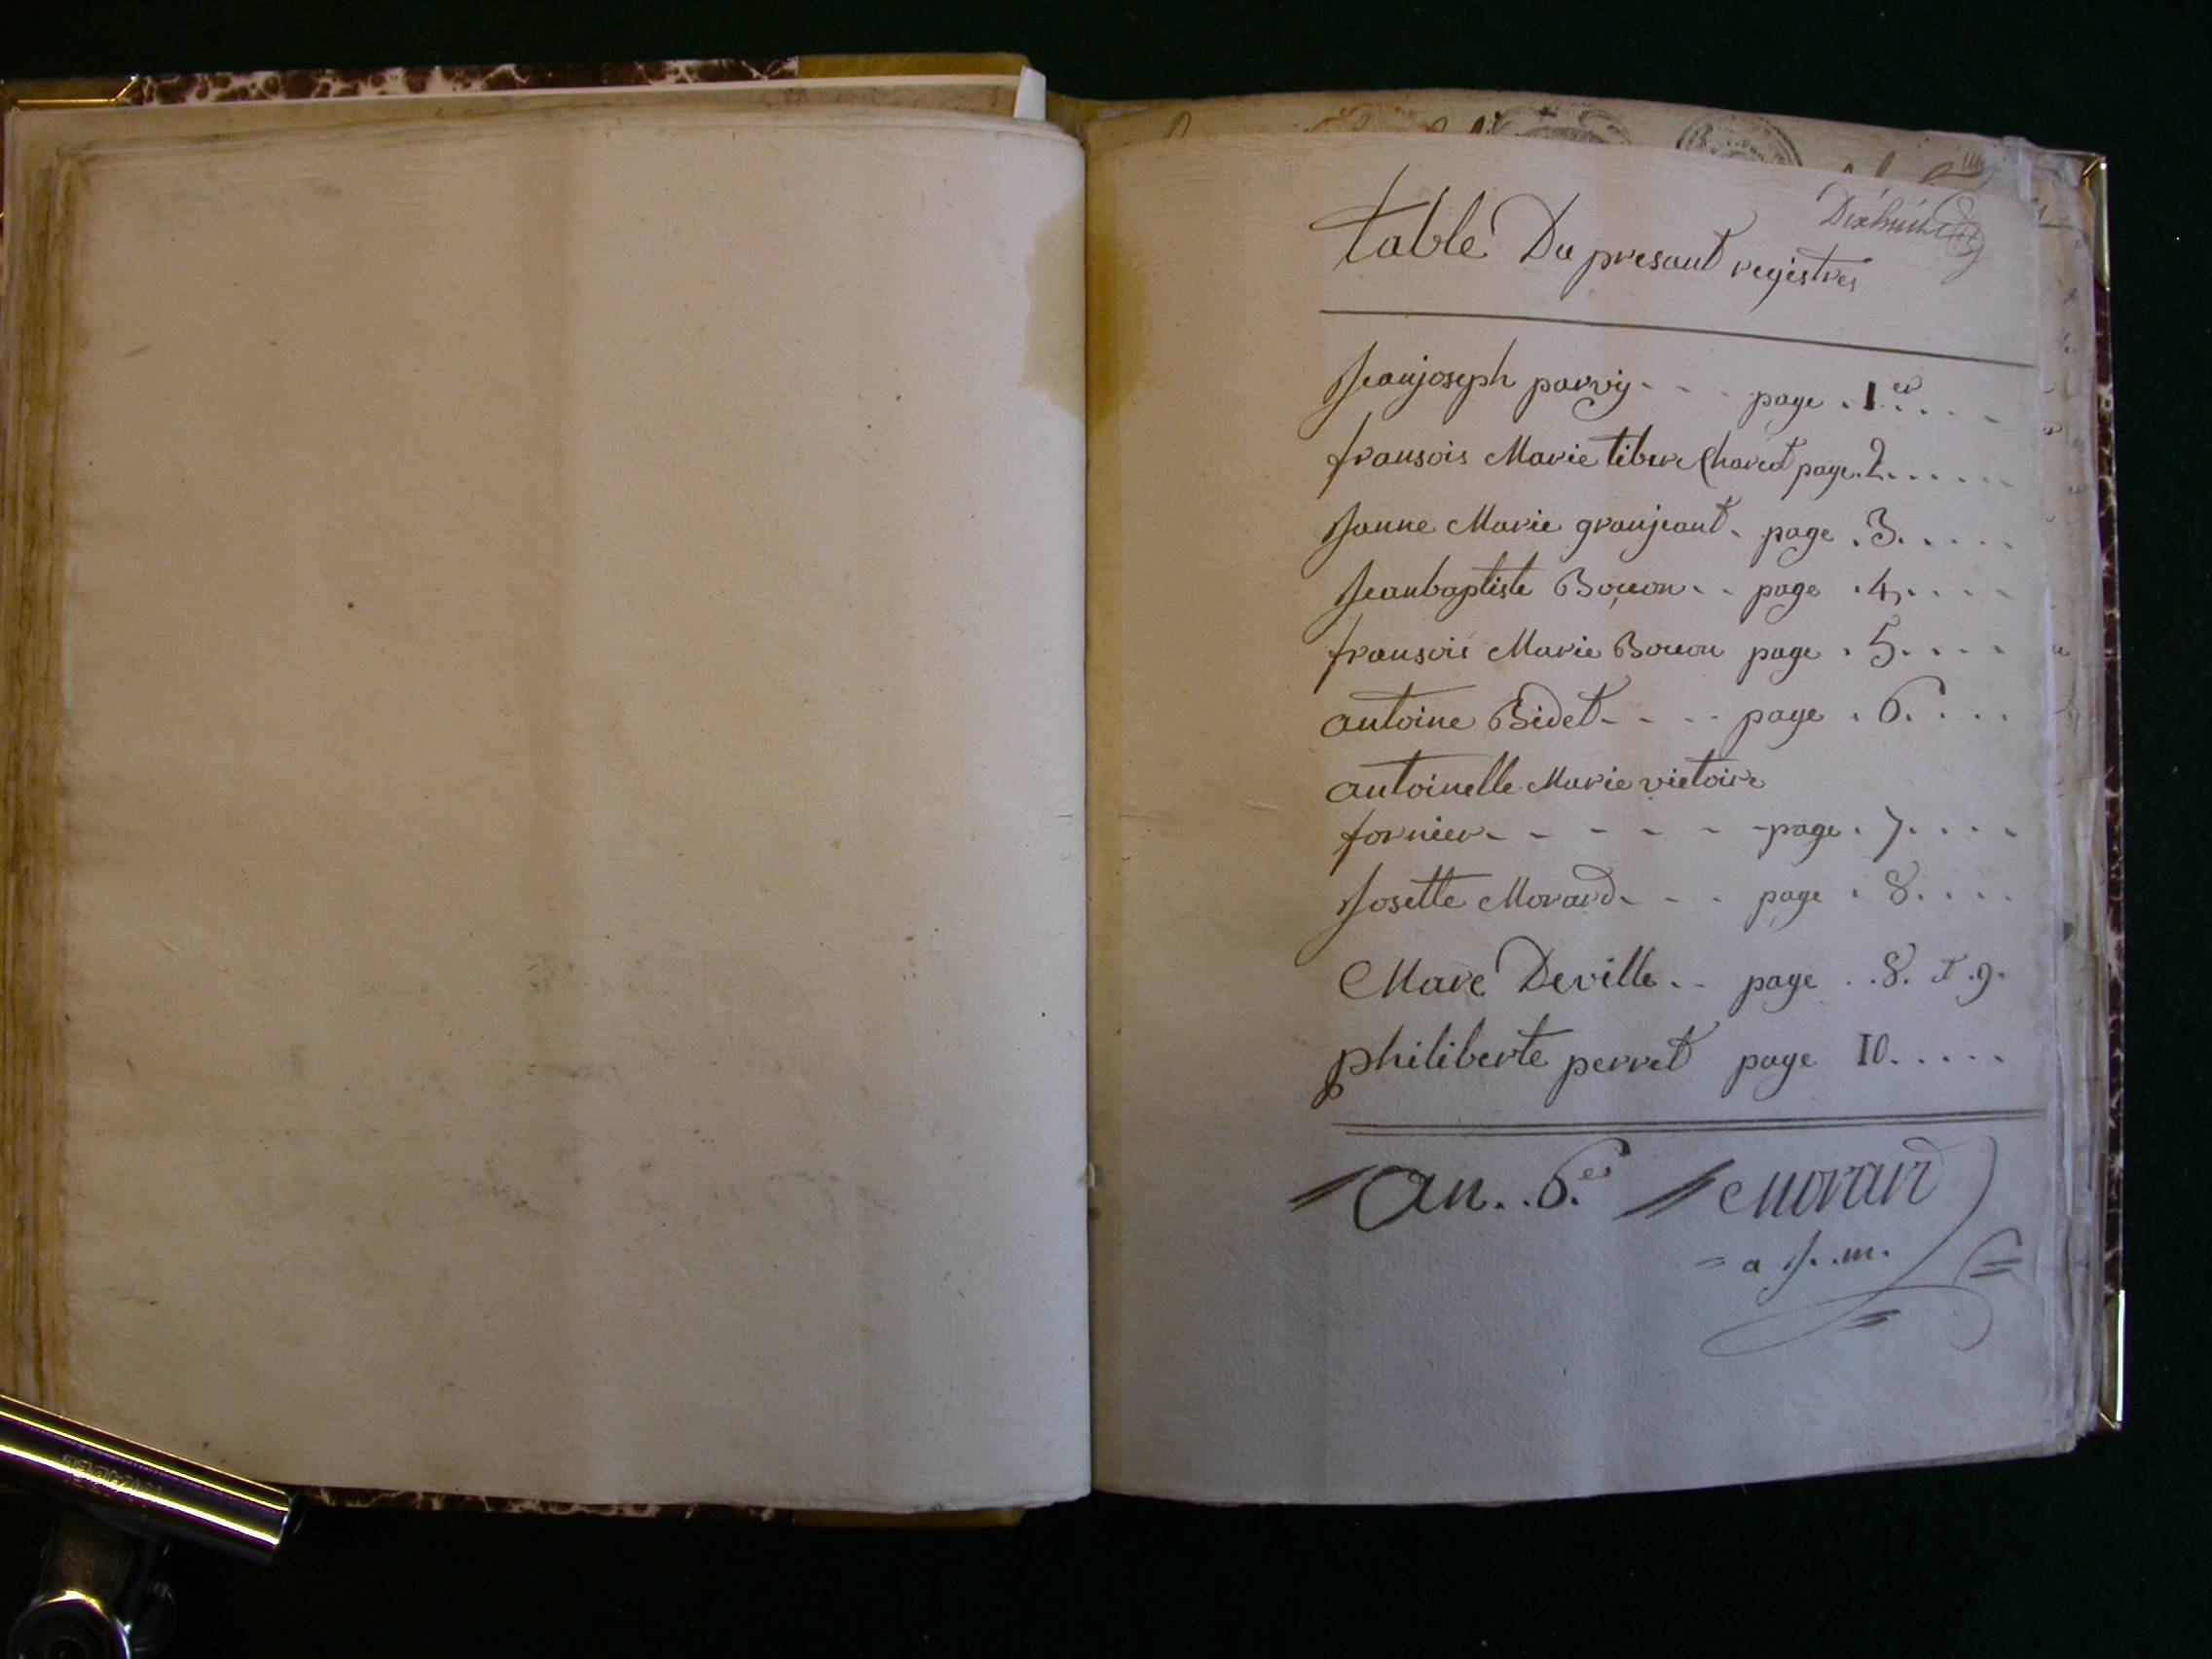 Dixhuit
table Du presant registres
Jeanjoseph parvy - - - page . 1.er . . . .
fransois Marie tibure Charet page . 2 . . . . . .
Janne Marie granjeant . page . 3 . . . . .
Jeanbaptiste Bouon . . page . 4 . . . . .
fransois Marie Bouon page . 5 . . . .
antoine Bidet - - - - page . 6 . . . .
antoinette Marie victoire
fornier - - - - - - page . 7 . . . .
Josette Morard - - - page . 8 . . . .
Marc Deville . . page . . 8. & . 9.
philiberte perret page 10 . . . . .
an . . 6.e Morard
= a J. . m.